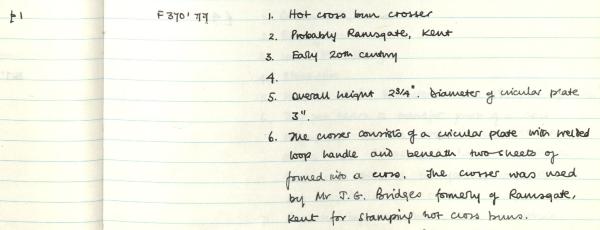 £1 F370'77 1. Hot cross bun crosser
2. Probably Ramsgate, Kent
3. Early 20th century
4.
5. Overall height 2 3/4". Diameter of circular plate
3".
6. The crosser consists of a circular plate with welded
loop handle and beneath two sheets of
formed into a cross. The crosser was used
by Mr J.G. Bridges formerly of Ramsgate,
Kent for stamping hot cross buns.